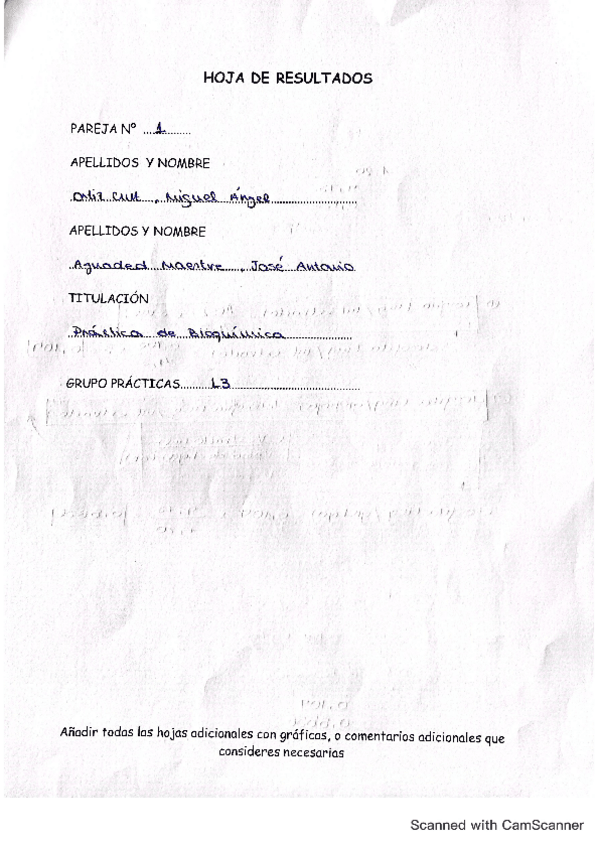 HOJA DE RESULTADOS
PAREJA Nº ....1.........
APELLIDOS Y NOMBRE
Ortiz Cruz, Miguel Ángel
APELLIDOS Y NOMBRE
Aguaded Maestre, José Antonio
TITULACIÓN
Práctica de Bioquímica
GRUPO PRÁCTICAS........L3
Añadir todas las hojas adicionales con gráficas, o comentarios adicionales que
consideres necesarias
Scanned with CamScanner